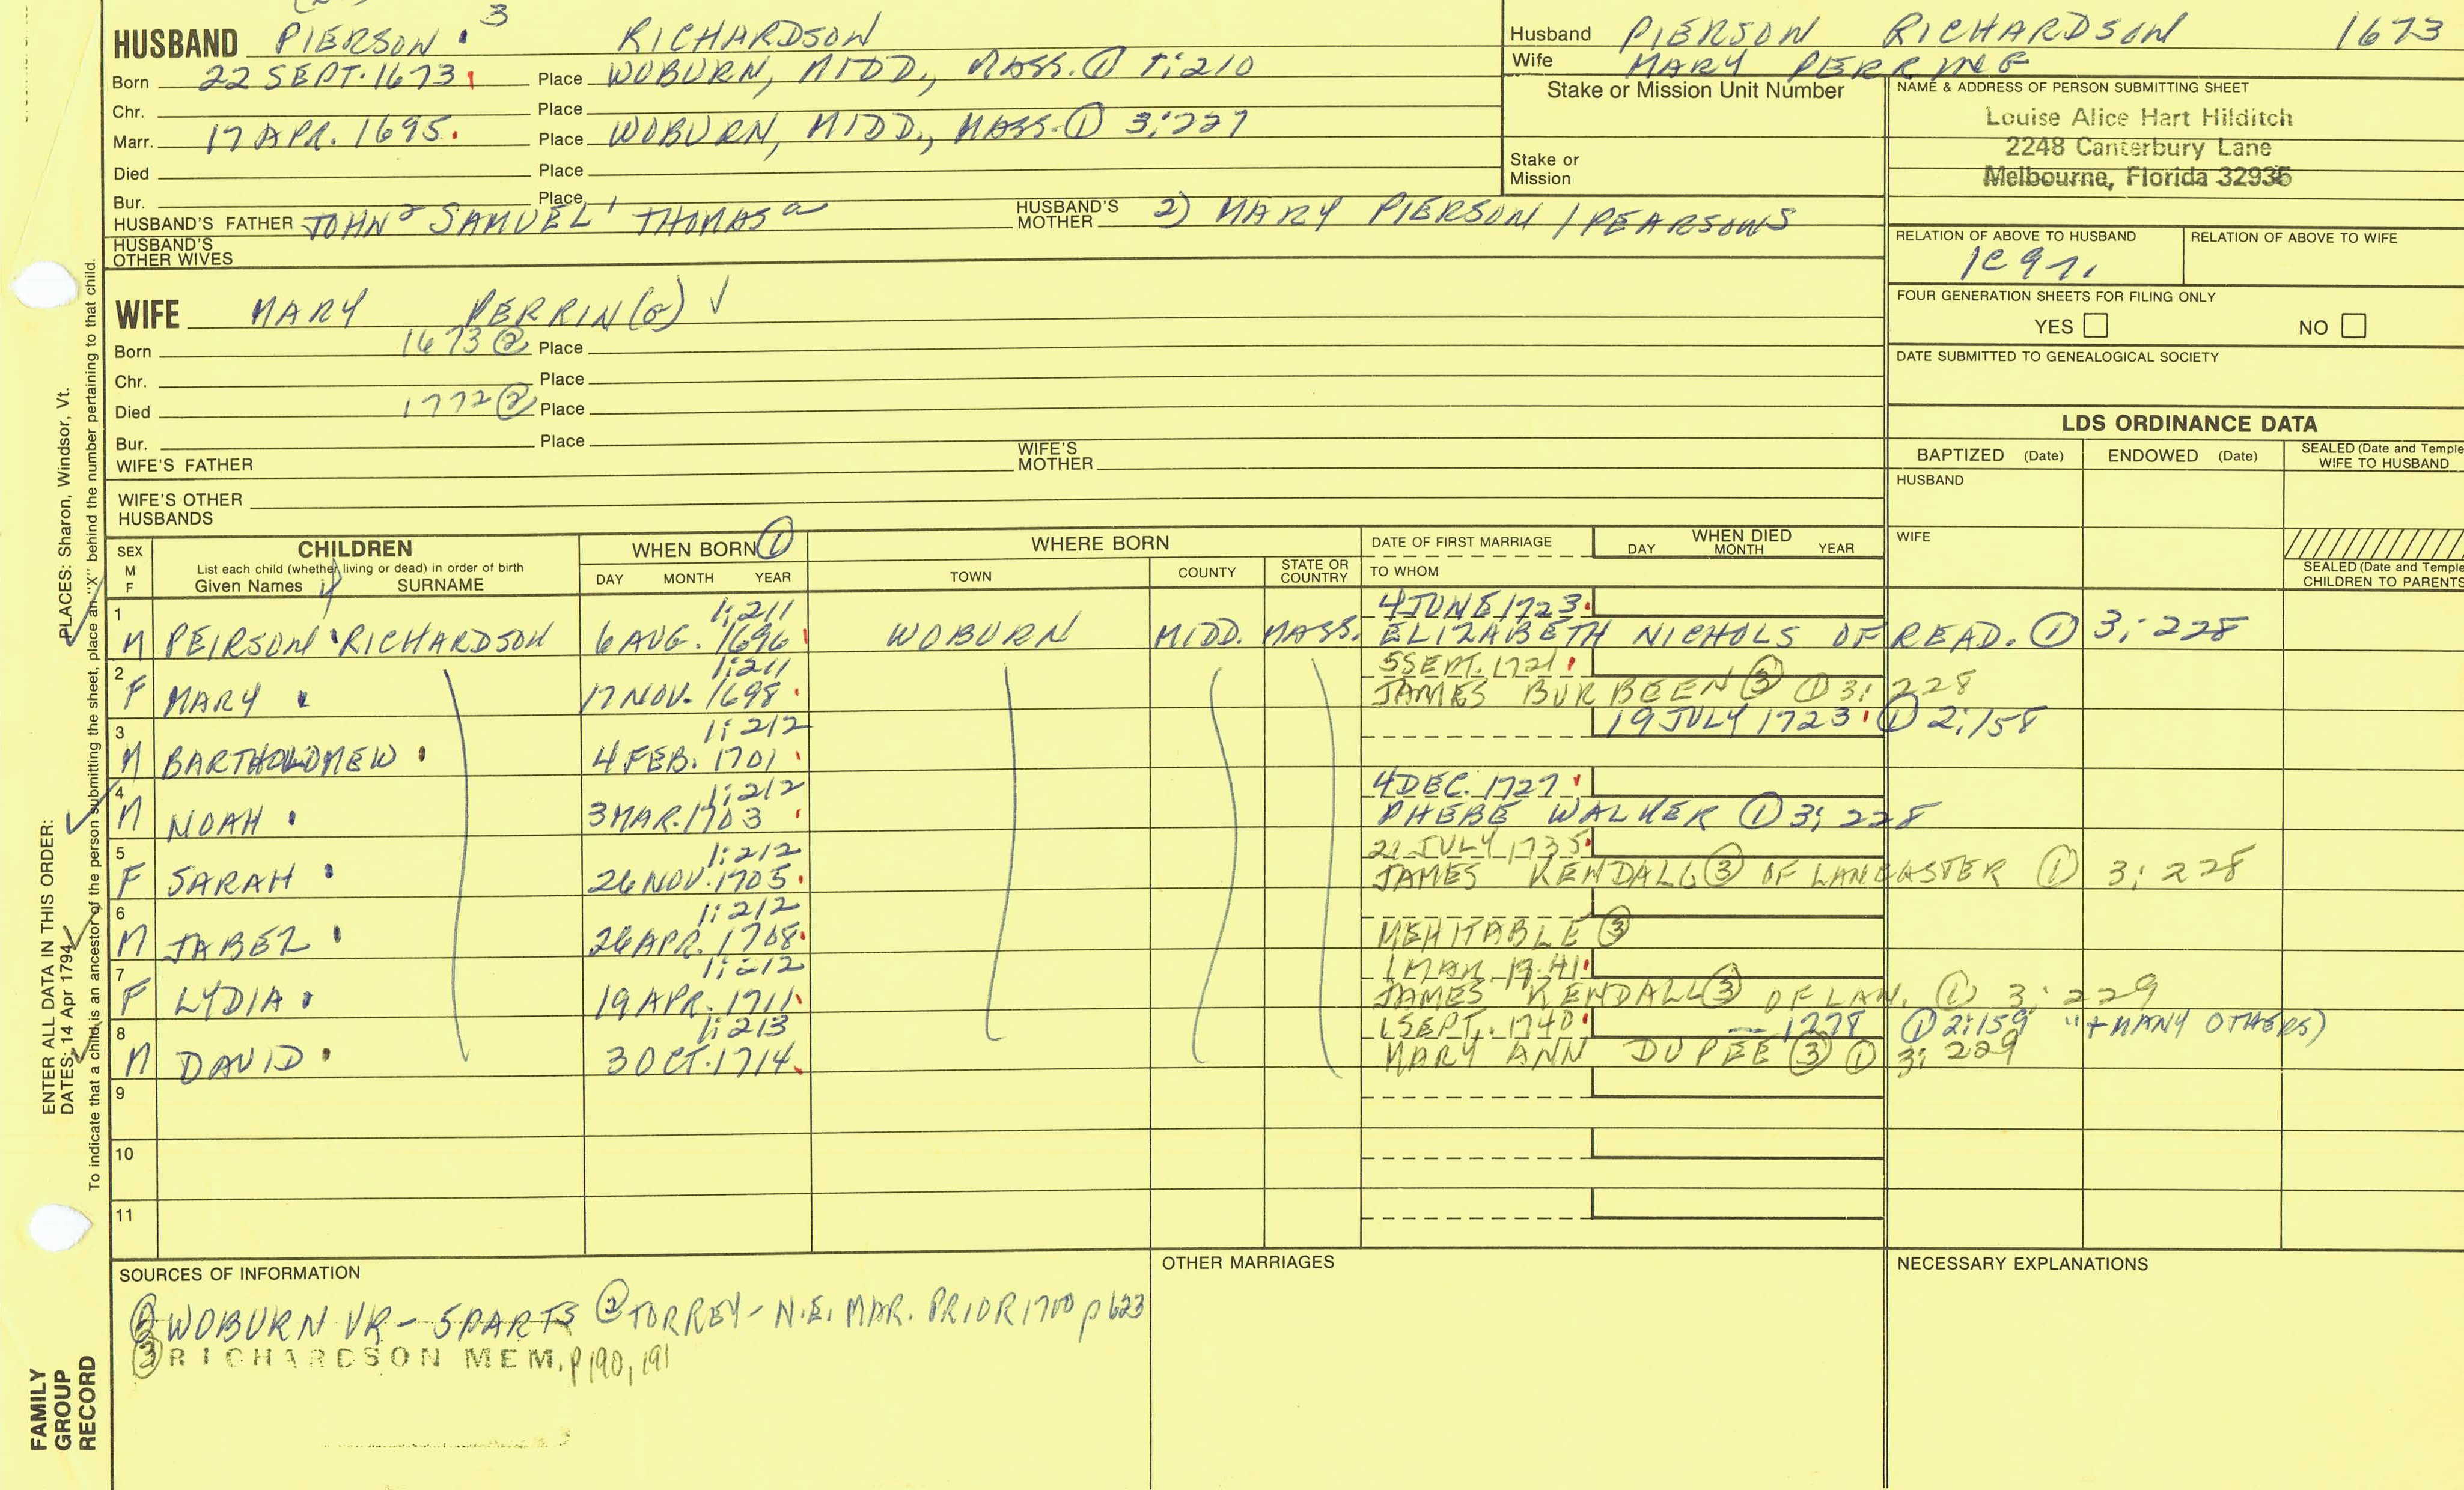 HUSBAND PIERSON 3 RICHARDSON
Born 22 SEPT. 1673 Place WOBURN, MIDD., MASS. ① 1:210
Chr. Place
Marr. 17 APR. 1695. Place WOBURN, MIDD., MASS. ① 3:227
Died Place
Bur. Place
HUSBAND'S FATHER JOHN2 SAMUEL1 THOMASa HUSBAND'S MOTHER 2) MARY PIERSON / PEARSONS
HUSBAND'S OTHER WIVES
WIFE MARY PERRIN(G) √
Born 1673 ② Place
Chr. Place
Died 1772 ② Place
Bur. Place
WIFE'S FATHER WIFE'S MOTHER
WIFE'S OTHER HUSBANDS
Husband PIERSON RICHARDSON 1673
Wife MARY PERRING
Stake or Mission Unit Number
Stake or Mission
NAME & ADDRESS OF PERSON SUBMITTING SHEET
Louise Alice Hart Hilditch
2248 Canterbury Lane
Melbourne, Florida 32935
RELATION OF ABOVE TO HUSBAND RELATION OF ABOVE TO WIFE
FOUR GENERATION SHEETS FOR FILING ONLY
YES NO
DATE SUBMITTED TO GENEALOGICAL SOCIETY
LDS ORDINANCE DATA
BAPTIZED (Date) ENDOWED (Date) SEALED (Date and Temple) WIFE TO HUSBAND
HUSBAND
WIFE
SEALED (Date and Temple) CHILDREN TO PARENTS
SEX M F CHILDREN WHEN BORN ① WHERE BORN DATE OF FIRST MARRIAGE WHEN DIED
List each child (whether living or dead) in order of birth
Given Names SURNAME DAY MONTH YEAR TOWN COUNTY STATE OR COUNTRY TO WHOM DAY MONTH YEAR
1 1:211 4 JUNE 1723
M PEIRSON RICHARDSON 6 AUG. 1696 WOBURN MIDD. MASS. ELIZABETH NICHOLS OF READ. ① 3:228
2 1:211 5 SEPT. 1721
F MARY 17 NOV. 1698 JAMES BURBEEN ③ ① 3:228
3 1:212 19 JULY 1723 ① 2:158
M BARTHOLOMEW 4 FEB. 1701
4 1:212 4 DEC. 1727
M NOAH 3 MAR. 1703 PHEBE WALKER ① 3:228
5 1:212 21 JULY 1735
F SARAH 26 NOV. 1705 JAMES KENDALL ③ OF LANCASTER ① 3:228
6 1:212
M JABEZ 26 APR. 1708 MEHITABLE ③
7 1:212 1 MAR 1741
F LYDIA 19 APR. 1711 JAMES KENDALL ③ OF LAN. ① 3:229
8 1:213 1 SEPT. 1740 — 1778 ① 2:159 "+ MANY OTHERS)
M DAVID 3 OCT. 1714 MARY ANN DUPEE ③ ① 3:229
9
10
11
SOURCES OF INFORMATION OTHER MARRIAGES NECESSARY EXPLANATIONS
① WOBURN VR - 5 PARTS ② TORREY - N.E. MAR. PRIOR 1700 p 623
③ RICHARDSON MEM. p 190, 191
ENTER ALL DATA IN THIS ORDER:
DATES: 14 Apr 1794 PLACES: Sharon, Windsor, Vt.
To indicate that a child is an ancestor of the person submitting the sheet, place an "X" behind the number pertaining to that child.
FAMILY
GROUP
RECORD